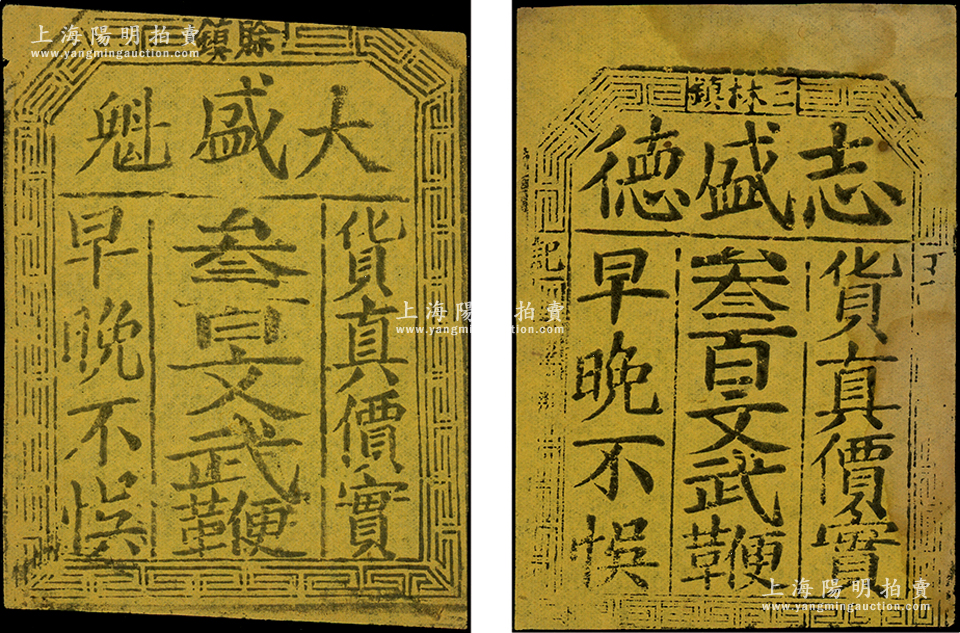 上海陽明拍賣
www.yangmingauction.com
賒鎮
大盛魁
貨真價實
叁百文武鞭
早晚不悮
三林鎮
志盛德
貨真價實
叁百文武鞭
早晚不悮
記
上海陽明拍賣
www.yangmingauction.com
上海陽明拍賣
www.yangmingauction.com